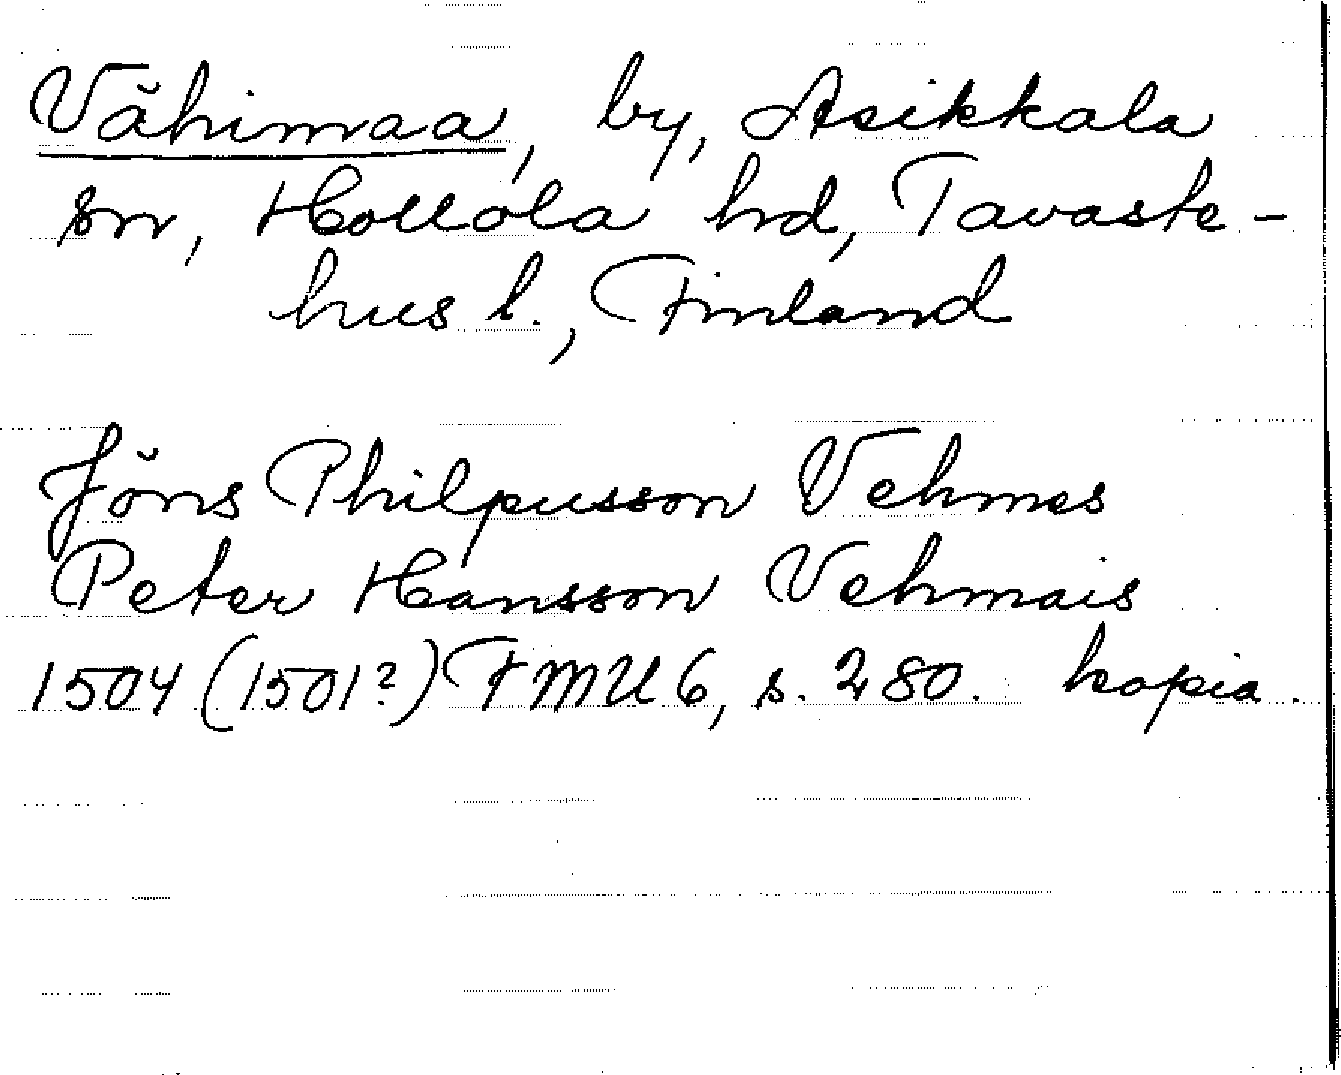 Vähimaa, by, Asikkala
sn, Hollola hd, Tavaste-
hus l., Finland
Jöns Philpusson Vehmes
Peter Hansson Vehmais
1504 (1501?) FMU 6, s. 280. kopia.